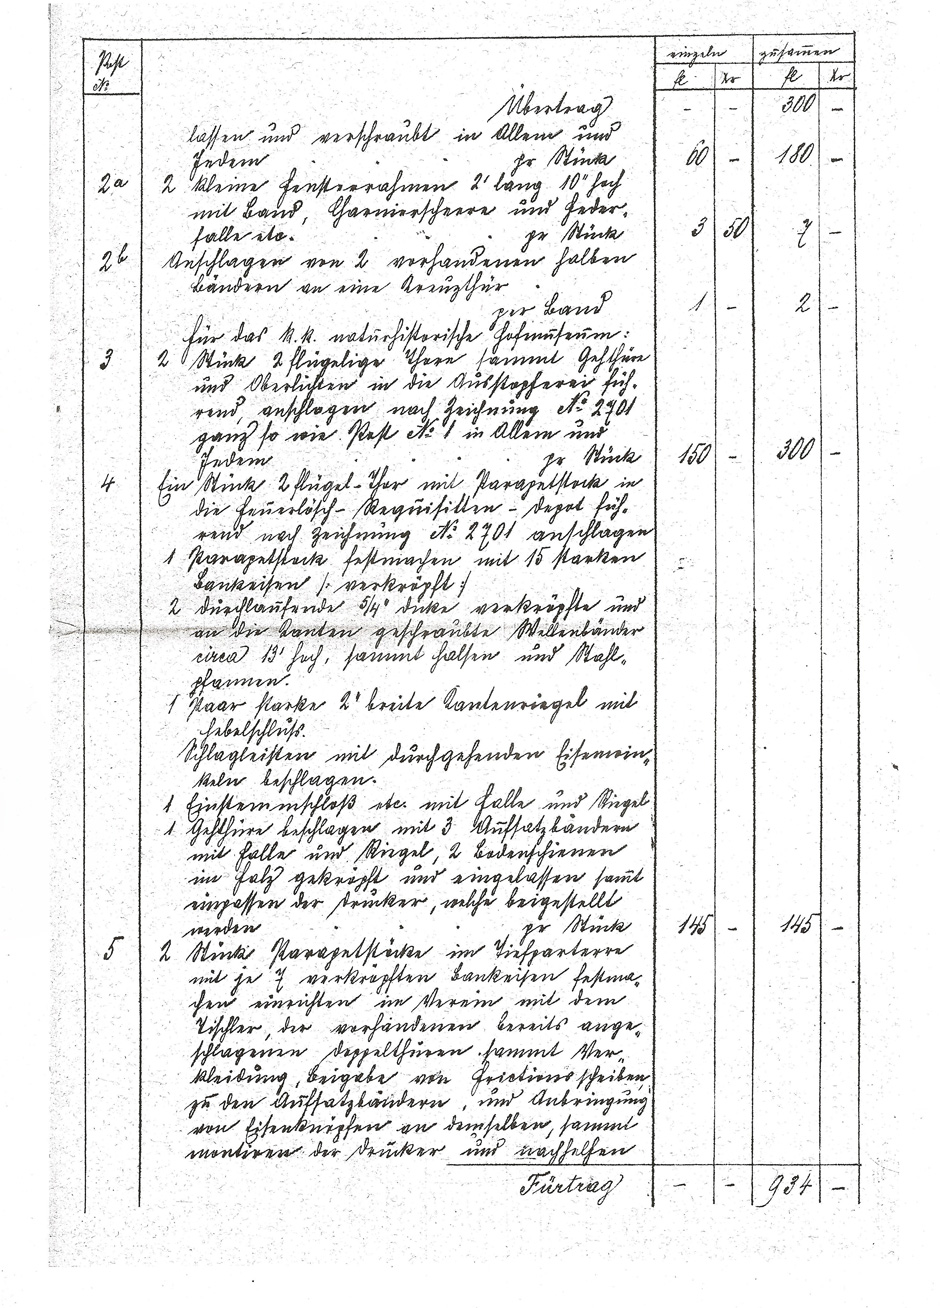 Post einzeln zusammen
No fl Xr fl Xr
Übertrag - - 300 -
lassen und verschraubt in Allem und
Jedem . . . pr Stück 60 - 180 -
2a 2 kleine Fensterrahmen 2' lang 10" hoch
mit Band, Charnierscheere und Feder-
falle etc. . . . pr Stück 3 50 7 -
2b Anschlagen von 2 vorhandenen halben
Bändern an eine Kreuzthür .
per Band 1 - 2 -
für das k.k. naturhistorische Hofmuseum:
3 2 Stück 2flügelige Thore sammt Gehthüre
und Oberlichten in die Ausstopferei füh-
rend, anschlagen nach Zeichnung No 2701
ganz so wie Post No 1 in Allem und
Jedem . . . pr Stück 150 - 300 -
4 Ein Stück 2flügel-Thor mit Parapetstock in
die Feuerlösch-Requisitten-Depot füh-
rend nach Zeichnung No 2701 anschlagen
1 Parapetstock festmachen mit 15 starken
Bankeisen /: verkröpft :/
2 durchlaufende 5/4" dicke verkröpfte und
an die Kanten geschraubte Wellenbänder
circa 13' hoch, sammt Halsen und Stahl-
pfannen.
1 Paar starke 2" breite Kantenriegel mit
Hebelschluss.
Schlagleisten mit durchgehenden Eisenwin-
keln beschlagen.
1 Einstemmschloß etc. mit Falle und Riegel
1 Gehthüre beschlagen mit 3 Aufsatzbändern
mit Falle und Riegel, 2 Bodenschienen
im Falz gekröpft und eingelassen sammt
einpassen der Drucker, welche beigestellt
werden . . . pr Stück 145 - 145 -
5 2 Stück Parapetstöcke im Tiefparterre
mit je 7 verkröpften Bankeisen festma-
chen einrichten im Verein mit dem
Tischler, der vorhandenen bereits ange-
schlagenen Doppelthüren sammt Ver-
kleidung, Beigabe von Frictionsscheiben
zu den Aufsatzbändern, und Anbringung
von Eisenknöpfen an denselben, sammt
montiren der Drucker und nachhelfen
Fürtrag - - 934 -